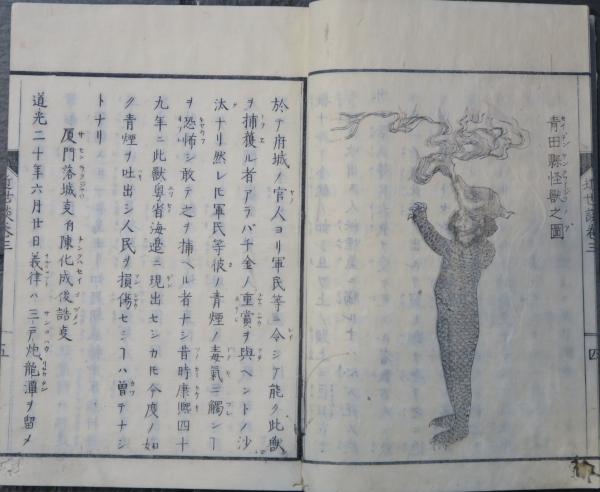 青田縣怪獸之圖
セイデンケン
近世談卷三
四
於テ府城ノ官人ヨリ軍民等ニ令シテ能ク此獸
ヲ捕獲ル者アラバ千金ノ重賞ヲ與ヘントノ沙
汰ナリ然レ𪜈軍民等彼ノ青煙ノ毒氣ニ觸ンヿ
ヲ恐怖シ敢テ之ヲ捕ヘル者ナシ昔時康熙四十
九年ニ此獸粤省海邊ニ現出セシカ𪜈今度ノ如
ク青煙ヲ吐出シ人民ヲ損傷セシヿハ曽テナシ
トナリ
厦門落城夌有陳化成後誥夌
道光二十年六月廿日義律ハ三戸炮龍潭ヲ留メ
五